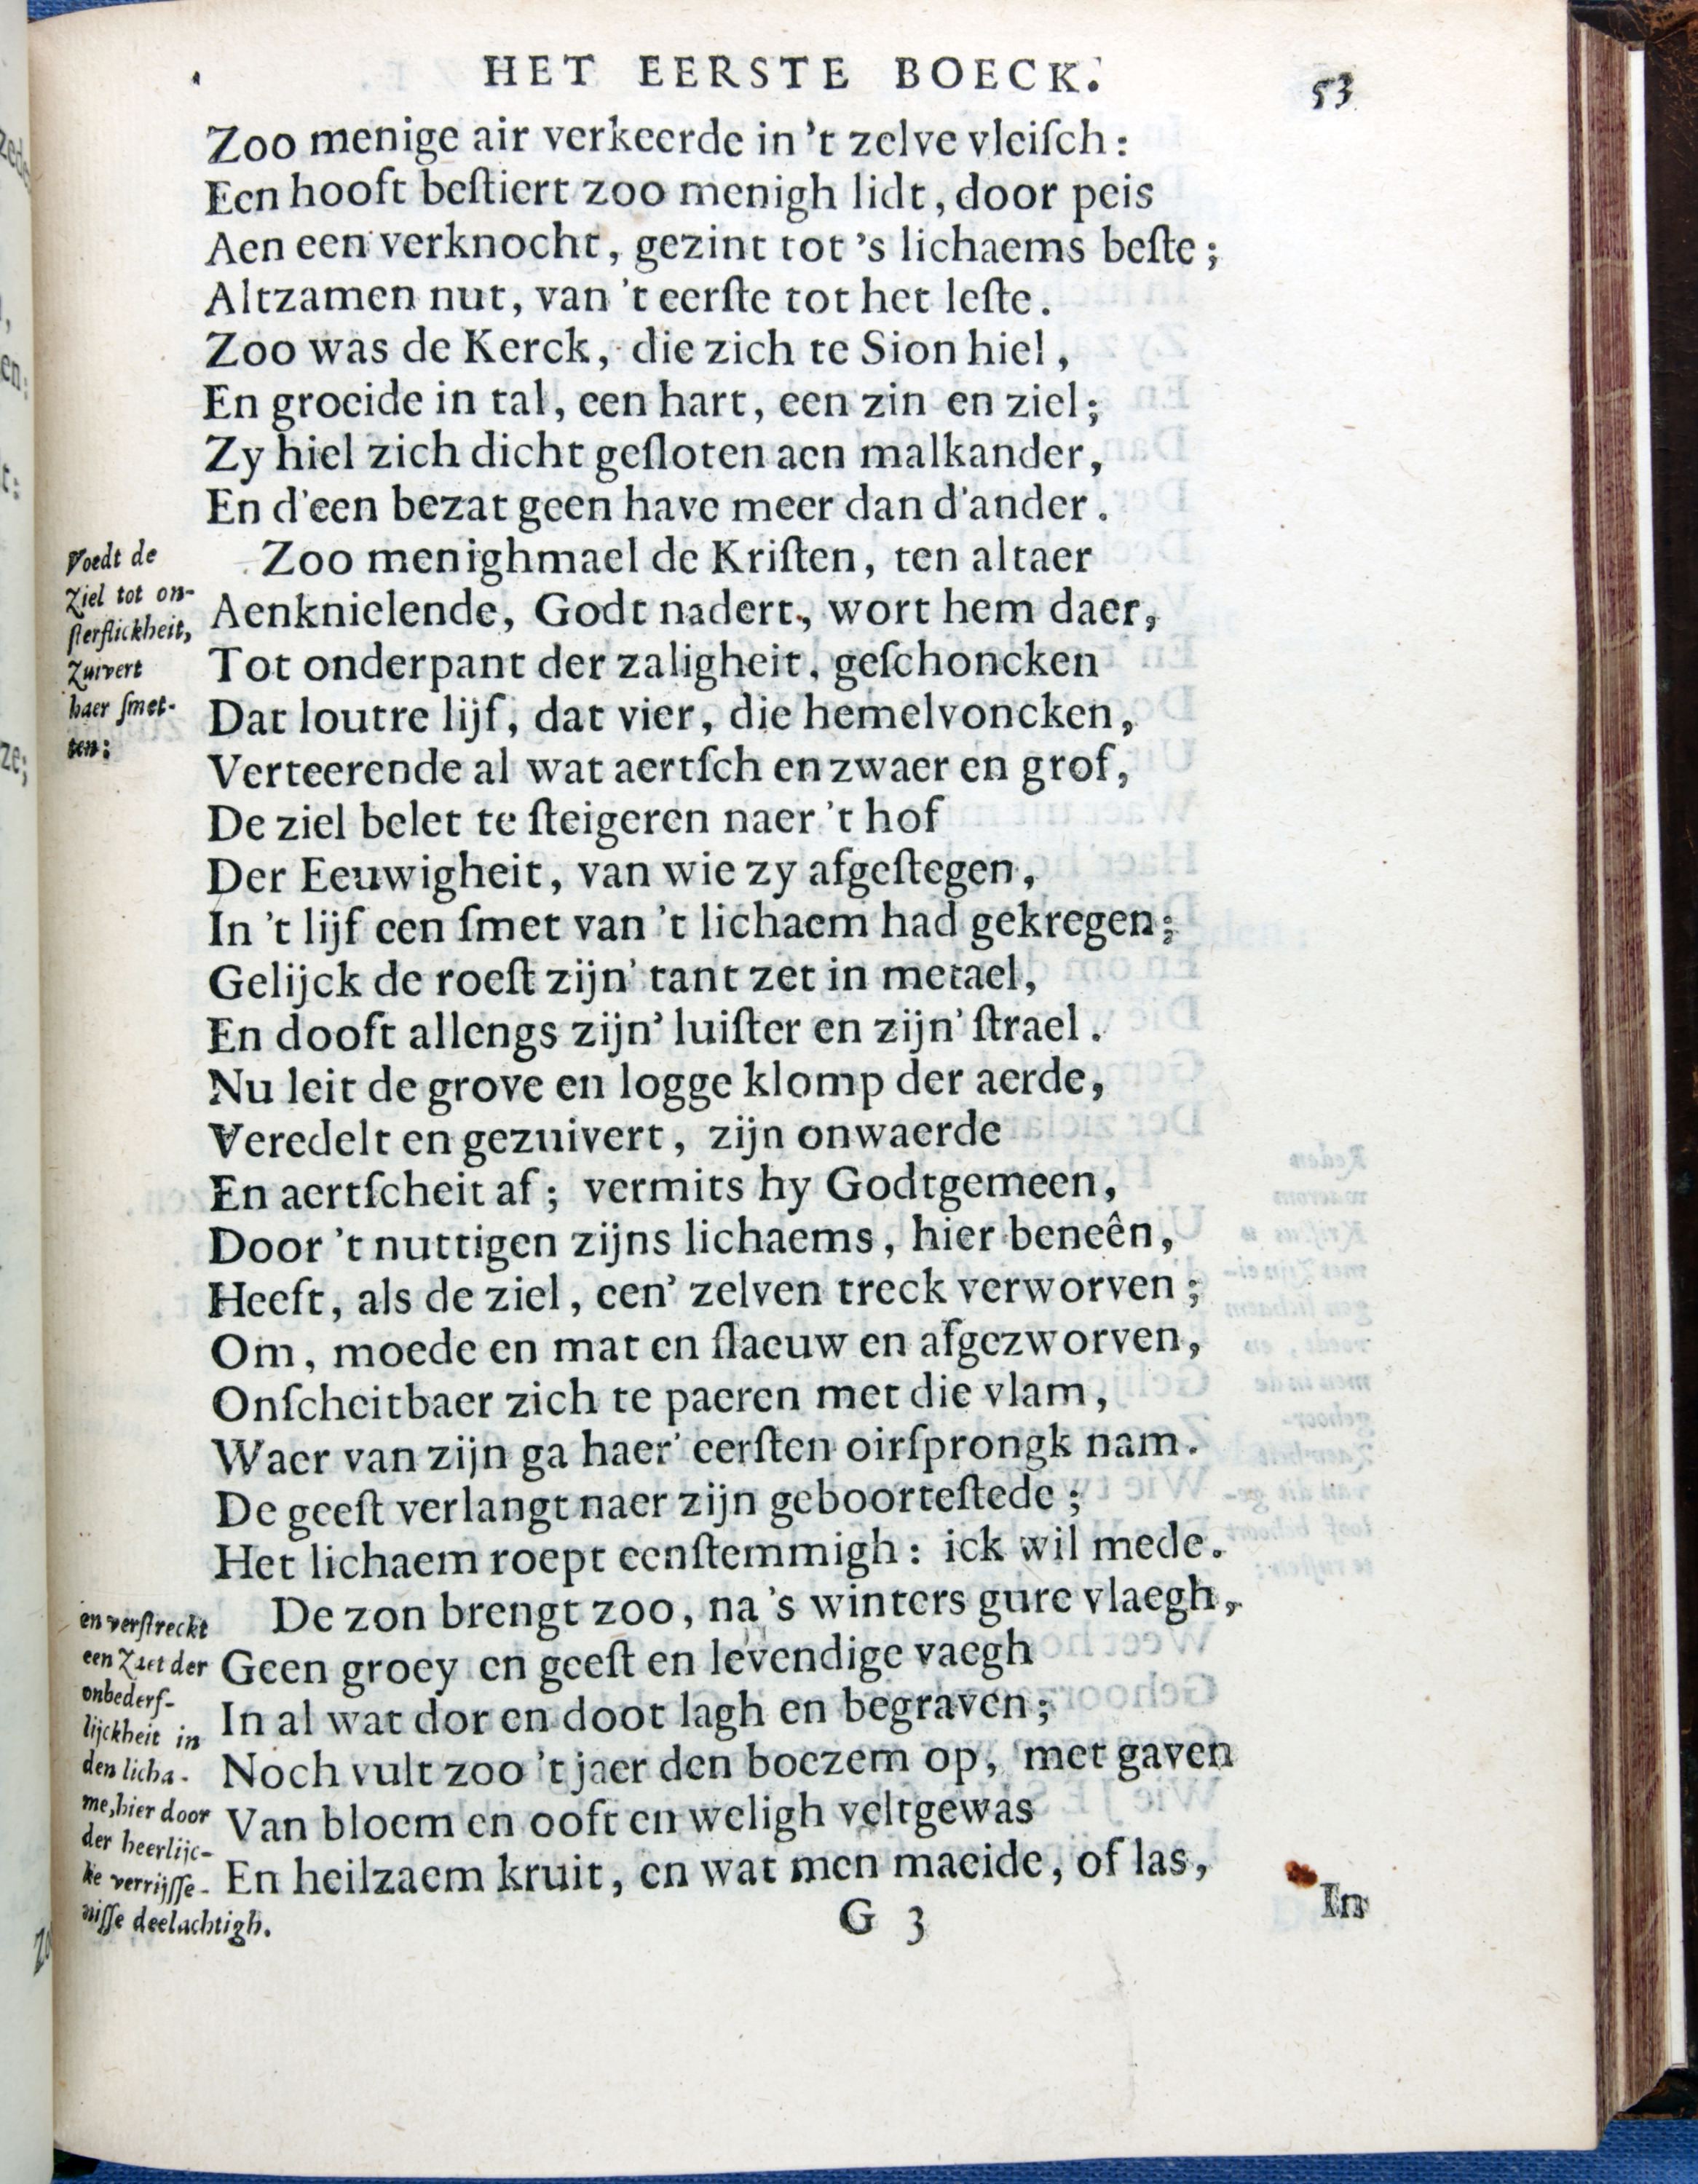 HET EERSTE BOECK.
53
Zoo menige air verkeerde in 't zelve vleiſch:
Een hooft beſtiert zoo menigh lidt, door peis
Aen een verknocht, gezint tot 's lichaems beſte;
Altzamen nut, van 't eerſte tot het leſte.
Zoo was de Kerck, die zich te Sion hiel,
En groeide in tal, een hart, een zin en ziel;
Zy hiel zich dicht geſloten aen malkander,
En d'een bezat geen have meer dan d'ander.
Voedt de
Ziel tot on-
ſterflickheit,
Zuivert
haer ſmet-
ten:
Zoo menighmael de Kriſten, ten altaer
Aenknielende, Godt nadert, wort hem daer,
Tot onderpant der zaligheit, geſchoncken
Dat loutre lijf, dat vier, die hemelvoncken,
Verteerende al wat aertſch en zwaer en grof,
De ziel belet te ſteigeren naer 't hof
Der Eeuwigheit, van wie zy afgeſtegen,
In 't lijf een ſmet van 't lichaem had gekregen;
Gelijck de roeſt zijn' tant zet in metael,
En dooft allengs zijn' luiſter en zijn' ſtrael.
Nu leit de grove en logge klomp der aerde,
Veredelt en gezuivert, zijn onwaerde
En aertſcheit af; vermits hy Godtgemeen,
Door 't nuttigen zijns lichaems, hier beneên,
Heeft, als de ziel, een' zelven treck verworven;
Om, moede en mat en ſlaeuw en afgezworven,
Onſcheitbaer zich te paeren met die vlam,
Waer van zijn ga haer' eerſten oirſprongk nam.
De geeſt verlangt naer zijn geboorteſtede;
Het lichaem roept eenſtemmigh: ick wil mede.
en verſtreckt
een Zaet der
onbederf-
lijckheit in
den licha-
me, hier door
der heerlijc-
ke verrijſſe-
niſſe deelachtigh.
De zon brengt zoo, na 's winters gure vlaegh,
Geen groey en geeſt en levendige vaegh
In al wat dor en doot lagh en begraven;
Noch vult zoo 't jaer den boezem op, met gaven
Van bloem en ooft en weligh veltgewas
En heilzaem kruit, en wat men maeide, of las,
G 3
In